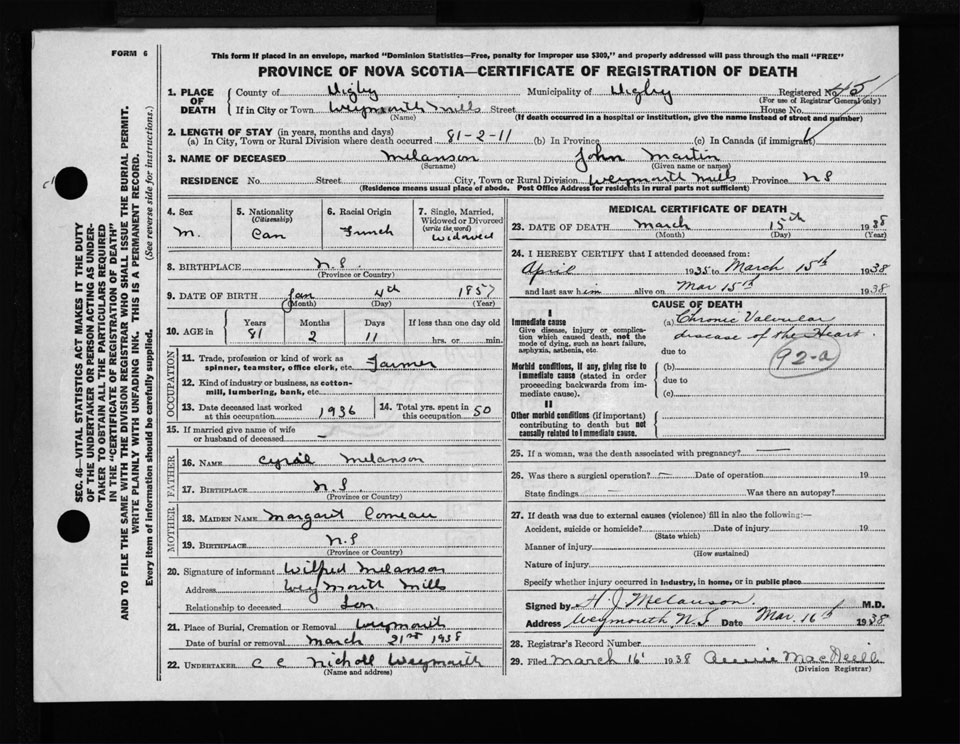 FORM 6
This form if placed in an envelope, marked "Dominion Statistics—Free, penalty for improper use $300," and properly addressed will pass through the mail "FREE"
PROVINCE OF NOVA SCOTIA—CERTIFICATE OF REGISTRATION OF DEATH
SEC. 46—VITAL STATISTICS ACT MAKES IT THE DUTY
OF THE UNDERTAKER OR PERSON ACTING AS UNDER-
TAKER TO OBTAIN ALL THE PARTICULARS REQUIRED
IN THE "CERTIFICATE OF REGISTRATION OF DEATH"
AND TO FILE THE SAME WITH THE DIVISION REGISTRAR WHO SHALL ISSUE THE BURIAL PERMIT.
WRITE PLAINLY WITH UNFADING INK. THIS IS A PERMANENT RECORD.
Every item of information should be carefully supplied. (See reverse side for instructions.)
1. PLACE OF DEATH
County of Digby Municipality of Digby Registered No. 45
(For use of Registrar General only)
If in City or Town Weymouth Mills Street House No.
(Name) (If death occurred in a hospital or institution, give the name instead of street and number)
2. LENGTH OF STAY (in years, months and days)
(a) In City, Town or Rural Division where death occurred 81-2-11 (b) In Province (c) In Canada (if immigrant)
3. NAME OF DECEASED Melanson John Martin
(Surname) (Given name or names)
RESIDENCE No. Street City, Town or Rural Division Weymouth Mills Province NS
(Residence means usual place of abode. Post Office Address for residents in rural parts not sufficient)
4. Sex M.
5. Nationality (Citizenship) Can
6. Racial Origin French
7. Single, Married, Widowed or Divorced (write the word) Widowed
8. BIRTHPLACE N.S.
(Province or Country)
9. DATE OF BIRTH Jan 4th 1857
(Month) (Day) (Year)
10. AGE in Years 81 Months 2 Days 11 If less than one day old hrs. or min.
OCCUPATION
11. Trade, profession or kind of work as spinner, teamster, office clerk, etc. Farmer
12. Kind of industry or business, as cotton-mill, lumbering, bank, etc.
13. Date deceased last worked at this occupation 1936
14. Total yrs. spent in this occupation 50
15. If married give name of wife or husband of deceased —
FATHER
16. NAME Cyrille Melanson
17. BIRTHPLACE N.S
(Province or Country)
MOTHER
18. MAIDEN NAME Margaret Comeau
19. BIRTHPLACE N.S
(Province or Country)
20. Signature of informant Wilfred Melanson
Address Weymouth Mills
Relationship to deceased Son
21. Place of Burial, Cremation or Removal Weymouth
Date of burial or removal March 21st 1938
22. UNDERTAKER C C Nicholl Weymouth
(Name and address)
MEDICAL CERTIFICATE OF DEATH
23. DATE OF DEATH March 15th 1938
(Month) (Day) (Year)
24. I HEREBY CERTIFY that I attended deceased from:
April 1935 to March 15th 1938
and last saw him alive on Mar 15th 1938
CAUSE OF DEATH
I
Immediate cause
Give disease, injury or complication which caused death, not the mode of dying, such as heart failure, asphyxia, asthenia, etc.
(a) Chronic Valvular
disease of the Heart.
due to
92-a
Morbid conditions, if any, giving rise to immediate cause (stated in order proceeding backwards from immediate cause).
(b)
due to
(c)
II
Other morbid conditions (if important) contributing to death but not causally related to immediate cause.
25. If a woman, was the death associated with pregnancy? —
26. Was there a surgical operation? — Date of operation 19
State findings — Was there an autopsy?
27. If death was due to external causes (violence) fill in also the following:—
Accident, suicide or homicide? Date of injury 19
(State which)
Manner of injury
(How sustained)
Nature of injury
Specify whether injury occurred in industry, in home, or in public place
Signed by H. J. Melanson. M.D.
Address Weymouth N.S Date Mar. 16th 1938
28. Registrar's Record Number
29. Filed March 16' 1938 Annie MacNeill
(Division Registrar)